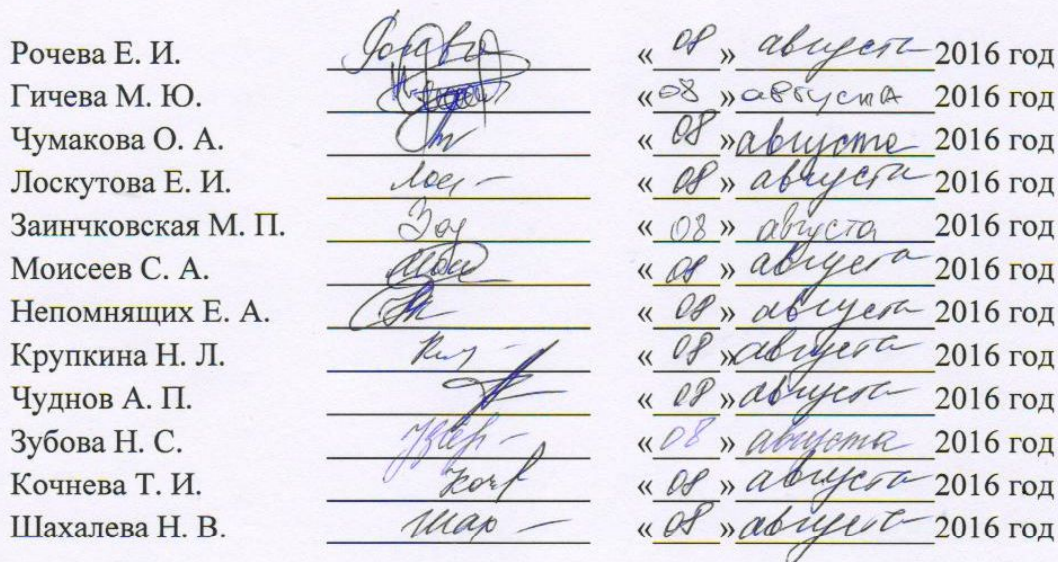 Рочева Е. И. « 08 » августа 2016 год
Гичева М. Ю. « 08 » августа 2016 год
Чумакова О. А. « 08 » августа 2016 год
Лоскутова Е. И. « 08 » августа 2016 год
Заинчковская М. П. « 08 » августа 2016 год
Моисеев С. А. « 08 » августа 2016 год
Непомнящих Е. А. « 08 » августа 2016 год
Крупкина Н. Л. « 08 » августа 2016 год
Чуднов А. П. « 08 » августа 2016 год
Зубова Н. С. « 08 » августа 2016 год
Кочнева Т. И. « 08 » августа 2016 год
Шахалева Н. В. « 08 » августа 2016 год